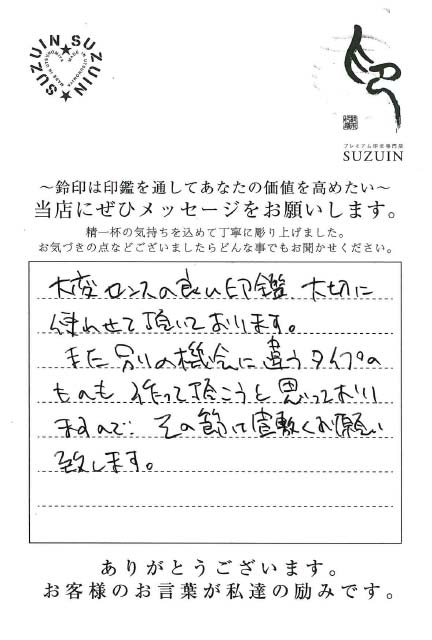 SUZUIN★SUZUIN★
MADE IN UTSUNOMIYA
プレミアム印章専門店
SUZUIN
～鈴印は印鑑を通してあなたの価値を高めたい～
当店にぜひメッセージをお願いします。
精一杯の気持ちを込めて丁寧に彫り上げました。
お気づきの点などございましたらどんな事でもお聞かせください。
大変センスの良い印鑑 大切に
使わせて頂いております。
また別の機会に違うタイプの
ものも 作って頂こうと思っており
ますので、その節は宜敷くお願い
致します。
ありがとうございます。
お客様のお言葉が私達の励みです。